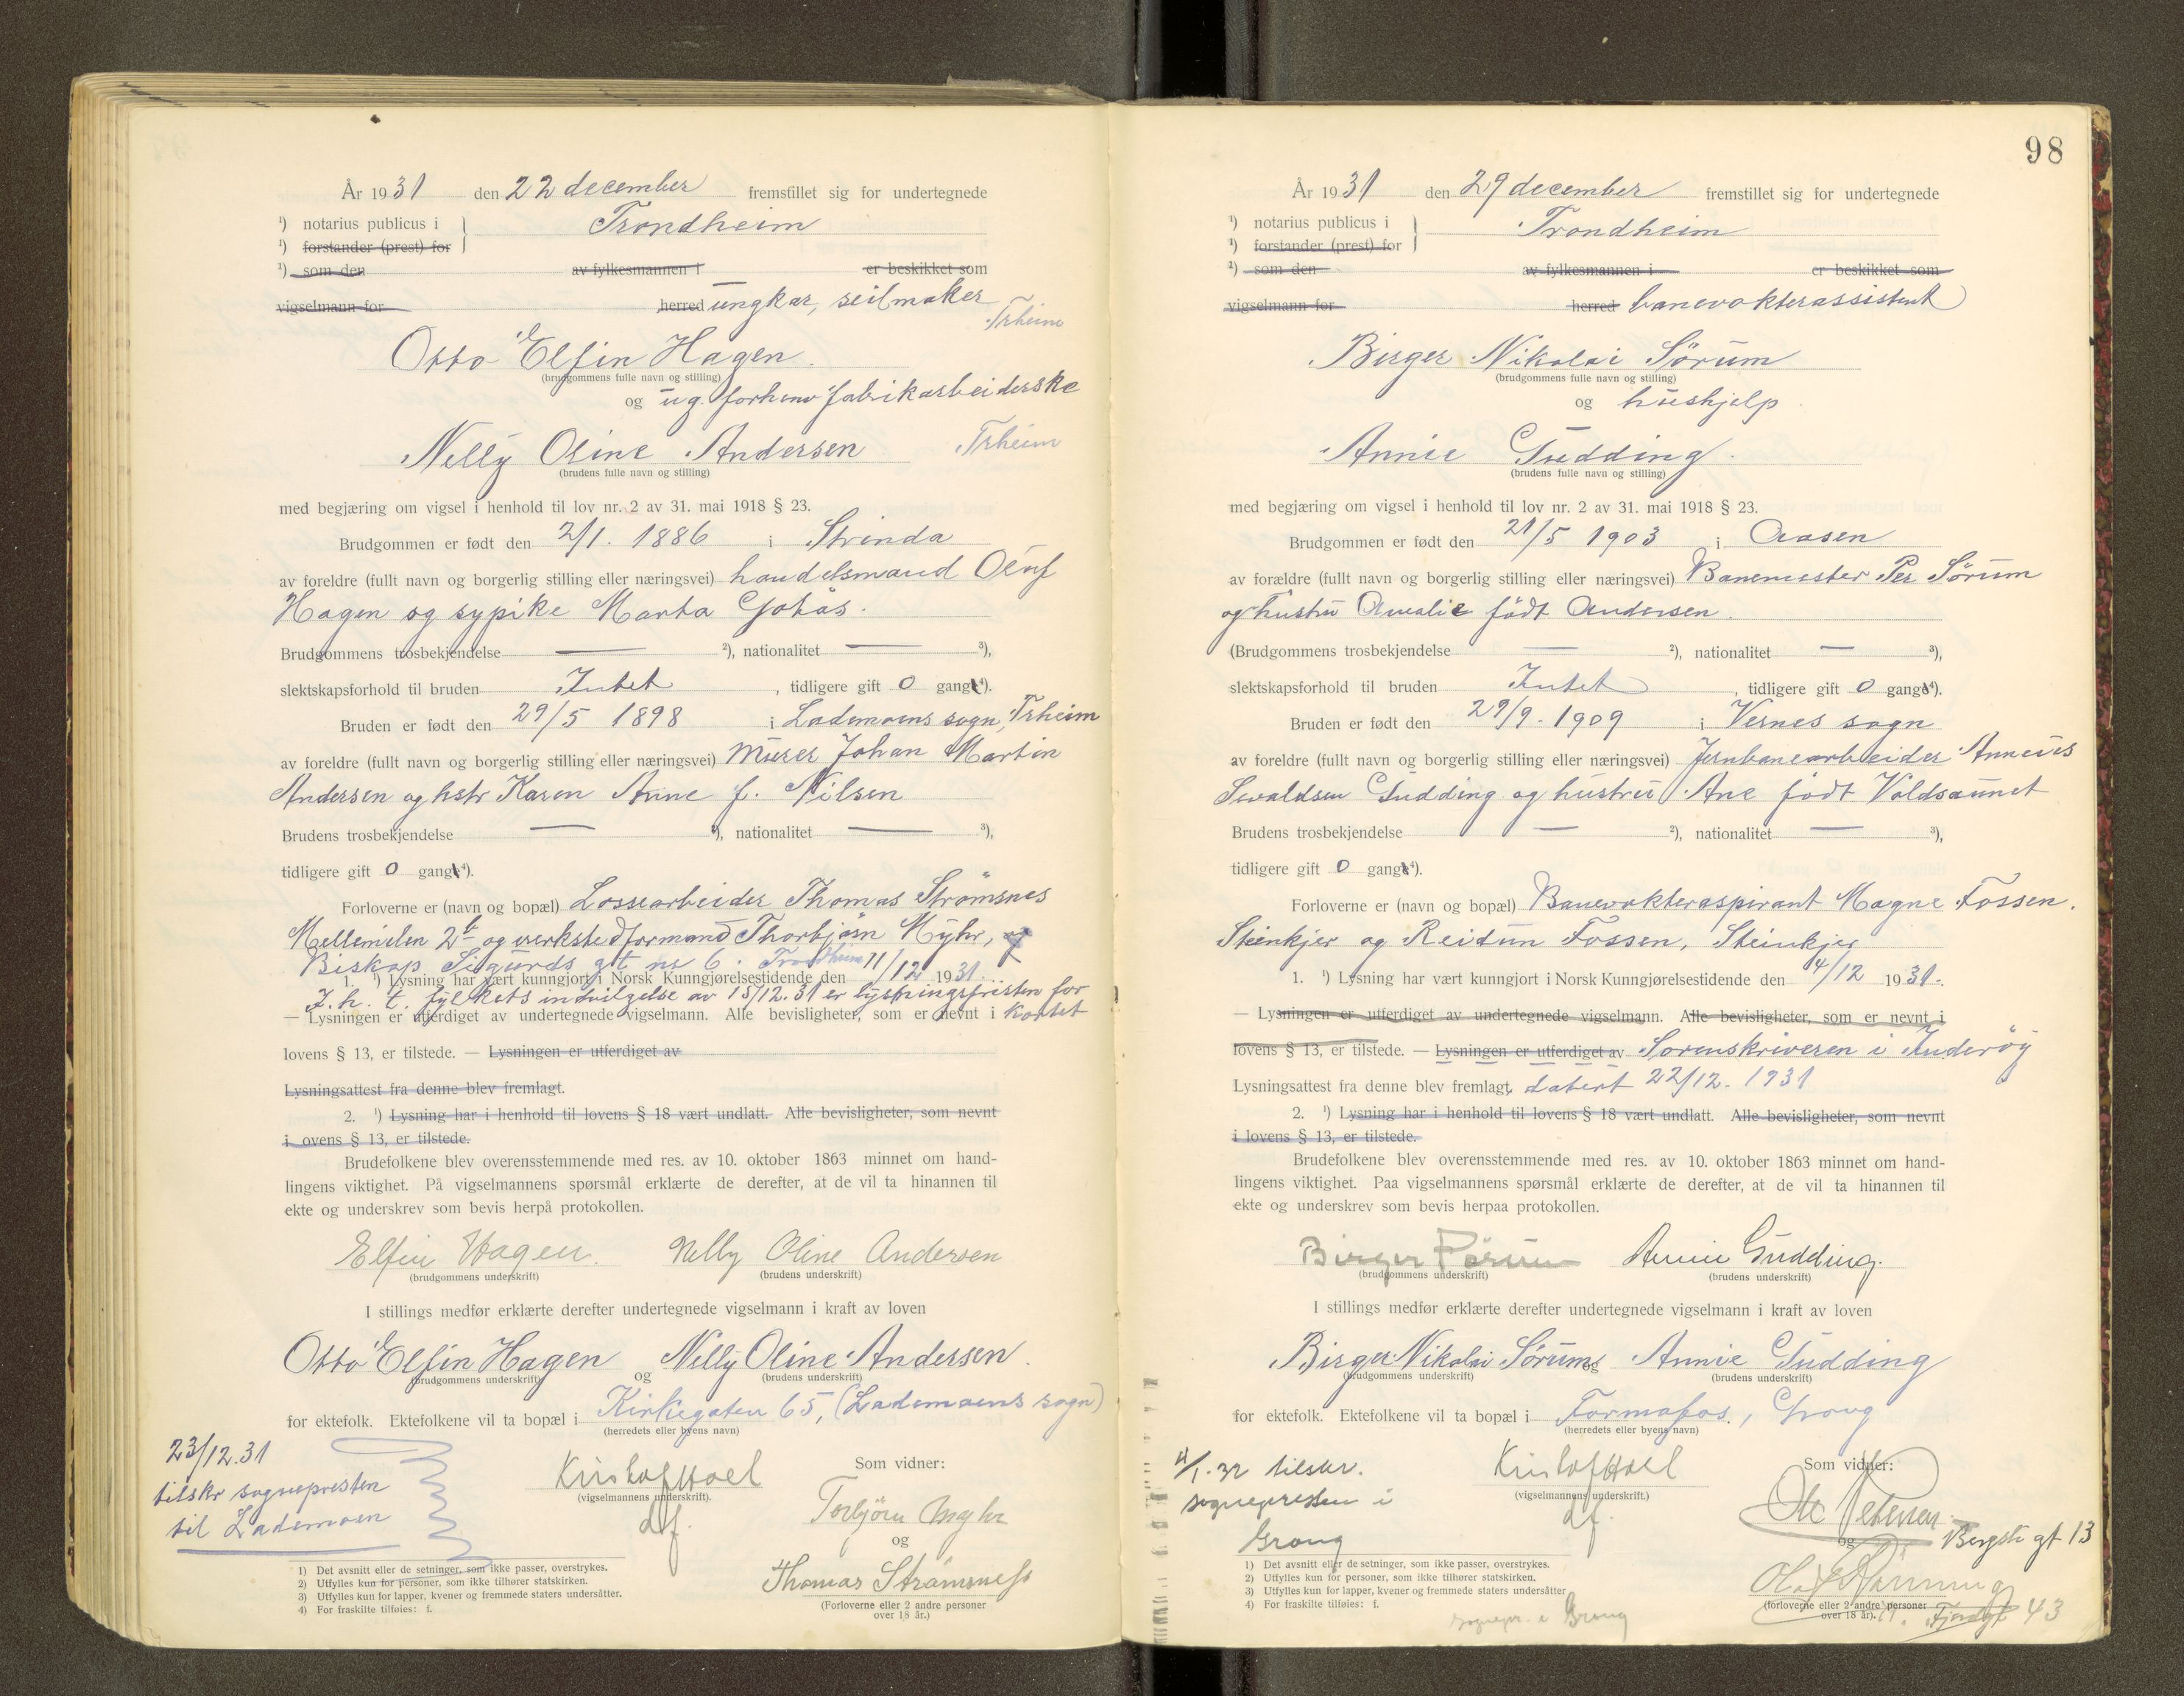 År 1931 den 22 december fremstillet sig for undertegnede
1) notarius publicus i Trondheim
1) forstander (prest) for
1) som den av fylkesmannen i er beskikket som
vigselmann for herred ungkar, seilmaker
Trheim
Otto Elfin Hagen
(brudgommens fulle navn og stilling)
og ug. forhenv fabrikarbeiderske
Nelly Oline Andersen Trheim
(brudens fulle navn og stilling)
med begjæring om vigsel i henhold til lov nr. 2 av 31. mai 1918 § 23.
Brudgommen er født den 2/1. 1886 i Strinda
av foreldre (fullt navn og borgerlig stilling eller næringsvei) handelsmand Oluf
Hagen og sypike Marta
Brudgommens trosbekjendelse — 2), nationalitet — 3),
slektskapsforhold til bruden Intet, tidligere gift 0 gang 4).
Bruden er født den 29/5 1898 i Lademoens sogn, Trheim
av foreldre (fullt navn og borgerlig stilling eller næringsvei) Murer Johan Martin
Andersen og hstr Karen Anne f. Nilsen
Brudens trosbekjendelse — 2), nationalitet — 3),
tidligere gift 0 gang 4).
Forloverne er (navn og bopæl) Lossearbeider Thomas Strömsnes
Mellemilen 2b og verkstedformand Thorbjørn Myhr,
Biskop Sigurds gt nr 6. Trondheim
1. 1) Lysning har vært kunngjort i Norsk Kunngjørelsestidende den 11/12 1931.
I. h. t. fylkets indvilgelse av 15/12.31 er lysningsfristen for
— Lysningen er utferdiget av undertegnede vigselmann. Alle bevisligheter, som er nevnt i kortet
lovens § 13, er tilstede. — Lysningen er utferdiget av
Lysningsattest fra denne blev fremlagt.
2. 1) Lysning har i henhold til lovens § 18 vært undlatt. Alle bevisligheter, som nevnt
i ovens § 13, er tilstede.
Brudefolkene blev overensstemmende med res. av 10. oktober 1863 minnet om hand-
lingens viktighet. På vigselmannens spørsmål erklærte de derefter, at de vil ta hinannen til
ekte og underskrev som bevis herpå protokollen.
Elfin Hagen. Nelly Oline Andersen
(brudgommens underskrift) (brudens underskrift)
I stillings medfør erklærte derefter undertegnede vigselmann i kraft av loven
Otto Elfin Hagen og Nelly Oline Andersen
(brudgommens underskrift) (brudens underskrift)
for ektefolk. Ektefolkene vil ta bopæl i Kirkegaten 65, (Lademoens sogn)
(herredets eller byens navn)
23/12.31
tilskr sognepresten
til Lademoen
Kristof Hoel
(vigselmannens underskrift).
df.
Som vidner:
Torbjörn Myhr
og
Thomas Strömsness
(Forloverne eller 2 andre personer
over 18 år.)
1) Det avsnitt eller de setninger, som ikke passer, overstrykes.
2) Utfylles kun for personer, som ikke tilhører statskirken.
3) Utfylles kun for lapper, kvener og fremmede staters undersåtter.
4) For fraskilte tilføies: f.
98
År 1931 den 29 december fremstillet sig for undertegnede
1) notarius publicus i Trondheim
1) forstander (prest) for
1) som den av fylkesmannen i er beskikket som
vigselmann for herred banevokterassistent
Birger Nikolai Sörum
(brudgommens fulle navn og stilling)
og hushjelp
Annie Gudding
(brudens fulle navn og stilling)
med begjæring om vigsel i henhold til lov nr. 2 av 31. mai 1918 § 23.
Brudgommen er født den 21/5 1903 i Aasen
av forældre (fullt navn og borgerlig stilling eller næringsvei) Banemester Per Sörum
og hustru Amalie født Andersen.
(Brudgommens trosbekjendelse — 2), nationalitet — 3),
slektskapsforhold til bruden Intet, tidligere gift 0 gang 4).
Bruden er født den 29/9. 1909 i Vernes sogn
av foreldre (fullt navn og borgerlig stilling eller næringsvei) Jernbanearbeider Anneus
Sevaldsen Gudding og hustru Ane født Voldsaunet
Brudens trosbekjendelse — 2), nationalitet — 3),
tidligere gift 0 gang 4).
Forloverne er (navn og bopæl) Banevokteraspirant Magne Fossen.
Steinkjer og Reidun Fossen, Steinkjer
1. 1) Lysning har vært kunngjort i Norsk Kunngjørelsestidende den 4/12 1931.
— Lysningen er utferdiget av undertegnede vigselmann. Alle bevisligheter, som er nevnt i
lovens § 13, er tilstede. — Lysningen er utferdiget av Sorenskriveren i Inderöy
Lysningsattest fra denne blev fremlagt, datert 22/12. 1931
2. 1) Lysning har i henhold til lovens § 18 vært undlatt. Alle bevisligheter, som nevnt
i lovens § 13, er tilstede.
Brudefolkene blev overensstemmende med res. av 10. oktober 1863 minnet om hand-
lingens viktighet. Paa vigselmannens spørsmål erklærte de derefter, at de vil ta hinannen til
ekte og underskrev som bevis herpaa protokollen.
Birger Sörum Annie Gudding.
(brudgommens underskrift) (brudens underskrift)
I stillings medfør erklærte derefter undertegnede vigselmann i kraft av loven
Birger Nikolai Sörum og Annie Gudding
(brudgommens underskrift) (brudens underskrift)
for ektefolk. Ektefolkene vil ta bopæl i Formofos, Grong
(herredets eller byens navn)
4/1.32 tilskr.
sognepresten i
Grong
Kristof Hoel
(vigselmannens underskrift.)
df.
Som vidner:
Ole Petersen
og Bergsli gt 13
(forloverne eller 2 andre personer
over 18 år). Fjordgt 43
1) Det avsnitt eller de setninger, som ikke passer, overstrykes.
2) Utfylles kun for personer, som ikke tilhører statskirken.
3) Utfylles kun for lapper, kvener og fremmede staters undersåtter
4) For fraskilte tilføies: f.
sognepr. i Grong